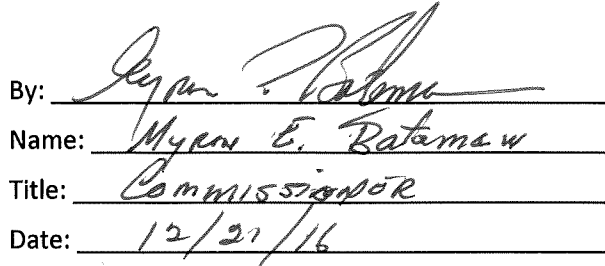 By: Myron E. Bateman
Name: Myron E. Bateman
Title: Commissioner
Date: 12/27/16